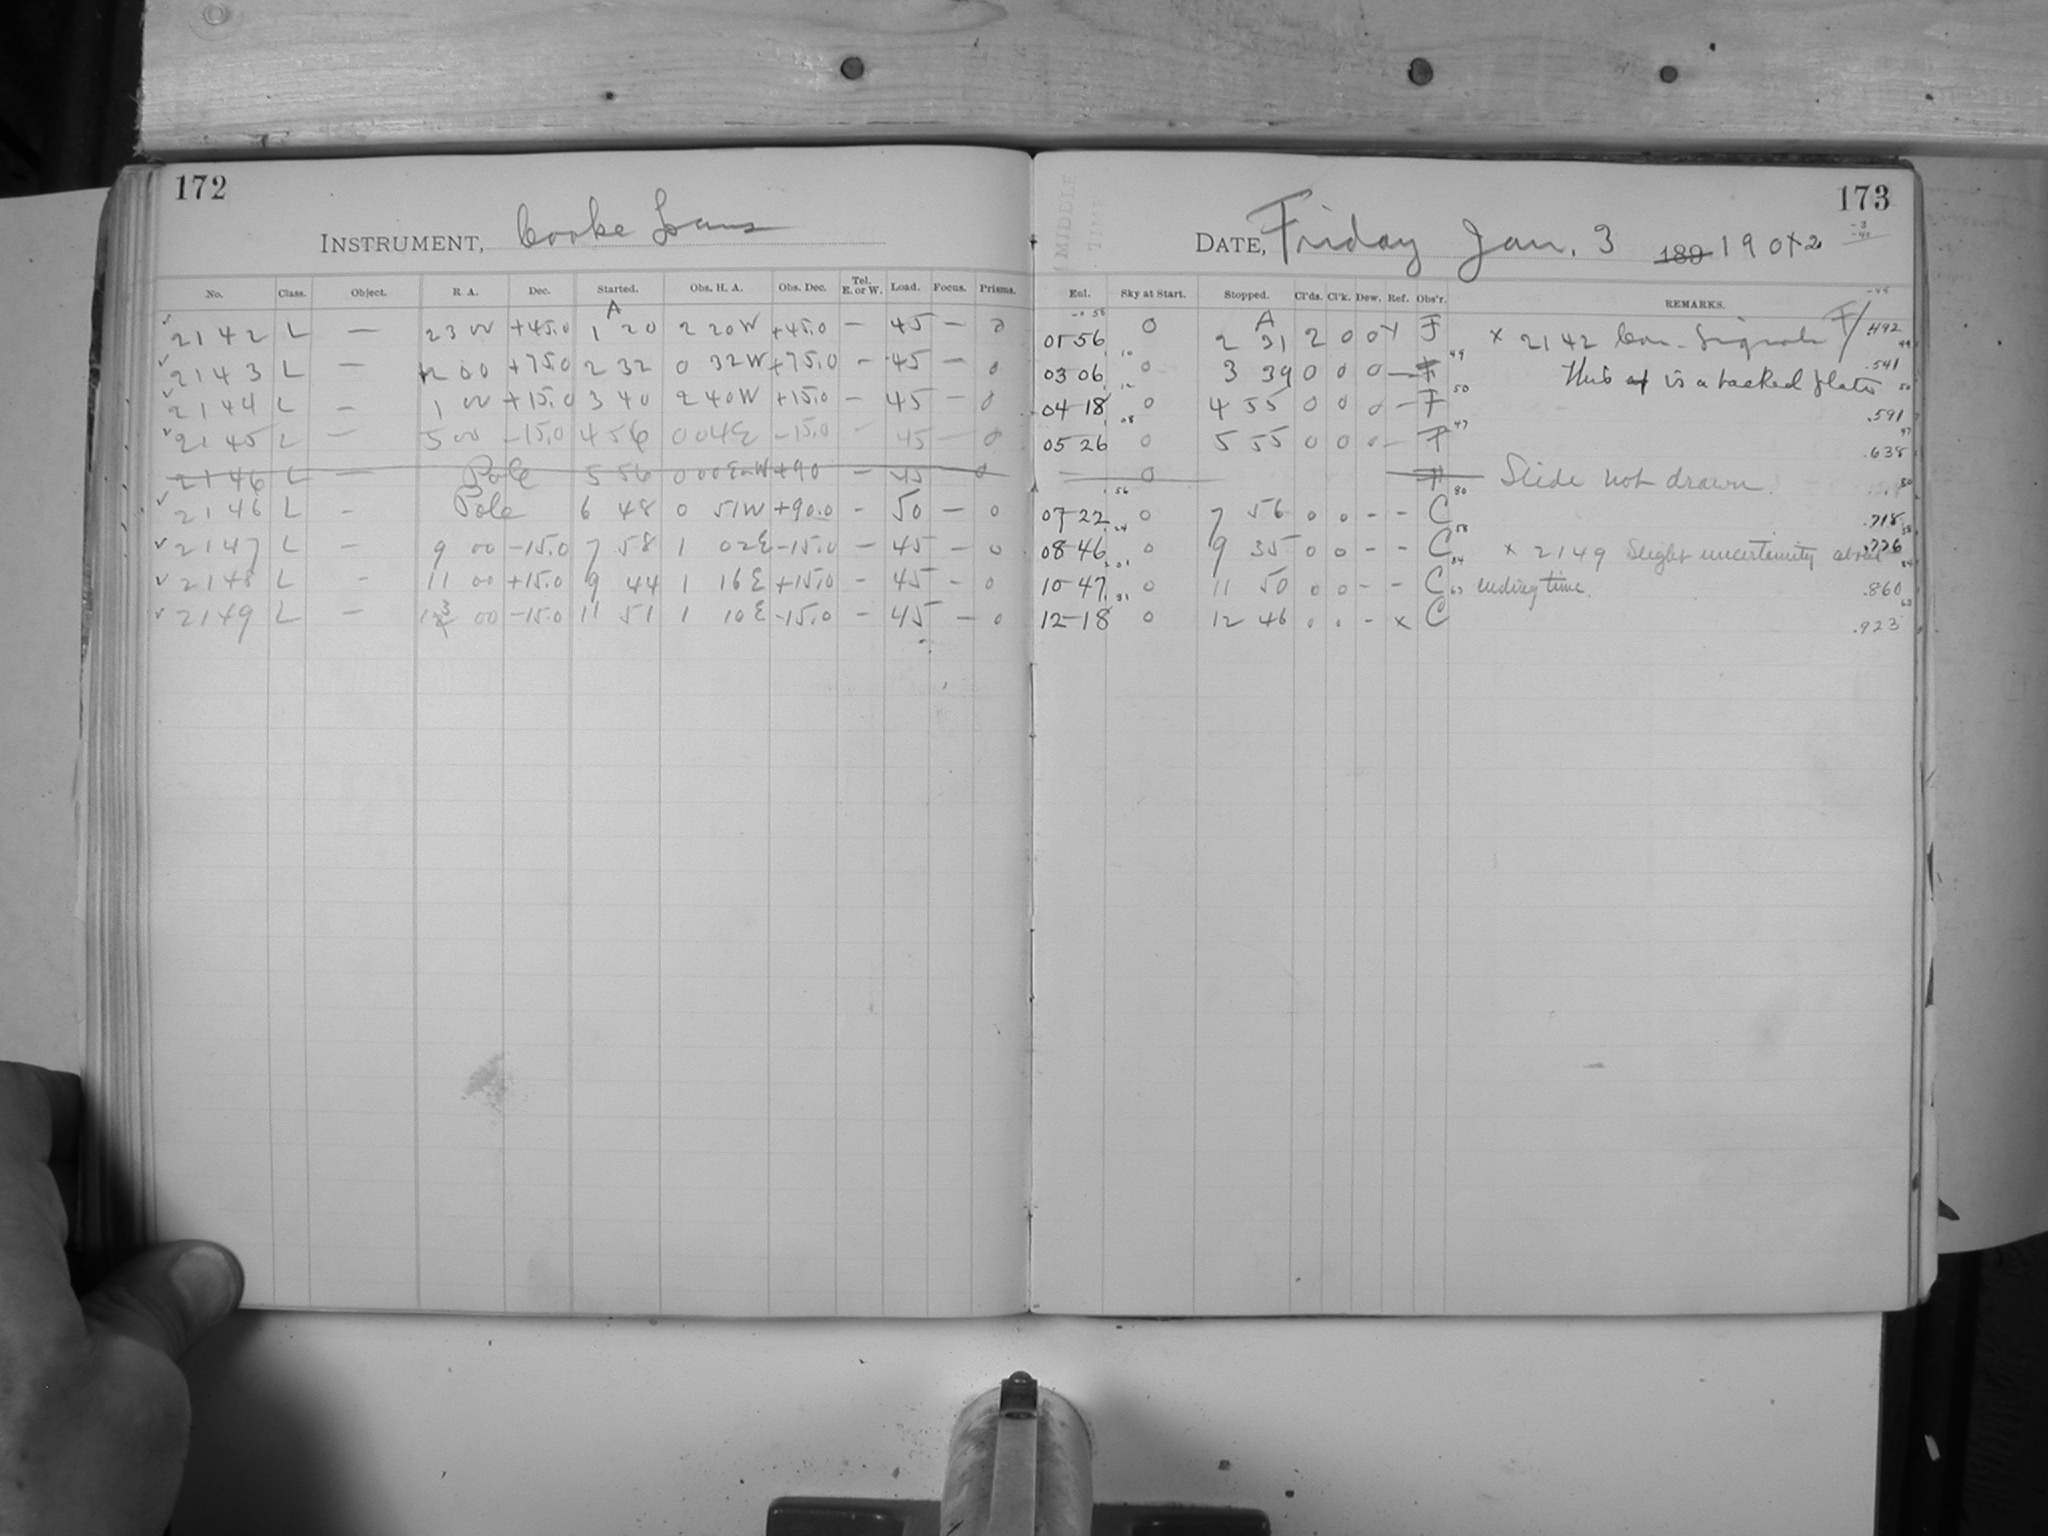 172
INSTRUMENT, Cooke Lens
No. Class. Object. R. A. Dec. Started. Obs. H. A. Obs. Dec. Tel. E. or W. Load. Focus. Prisms.
A
2142 L — 23 00 +45.0 1 20 2 20W +45.0 — 45 — 0
2143 L — 2 00 +75.0 2 32 0 32W +75.0 — 45 — 0
2144 L — 1 00 +15.0 3 40 2 40W +15.0 — 45 — 0
2145 L — 5 00 -15.0 4 56 0 04E -15.0 — 45 — 0
2146 L — Pole 5 56 0 00 E or W +90 — 45 0
2146 L — Pole 6 48 0 51W +90.0 — 50 — 0
2147 L — 9 00 -15.0 7 58 1 02E -15.0 — 45 — 0
2148 L — 11 00 +15.0 9 44 1 16E +15.0 — 45 — 0
2149 L — 13 00 -15.0 11 51 1 10E -15.0 — 45 — 0
173
DATE, Friday Jan. 3 189 1902
MIDDLE
TIME
Enl. Sky at Start. Stopped. Cl'ds. Cl'k. Dew. Ref. Obs'r. REMARKS.
A
01 56 0 2 31 2 0 0 x F x 2142 Con. Signals F/ .492
03 06 0 3 39 0 0 0 — F This is a backed plate .541
04-18 0 4 55 0 0 0 — F .591
05 26 0 5 55 0 0 0 — F .638
0 F Slide not drawn.
07-22 0 7 56 0 0 - - C .718
08-46 0 9 35 0 0 - - C x 2149 Slight uncertainty about .776
10-47 0 11 50 0 0 - - C ending time. .860
12-18 0 12 46 0 0 - x C .923